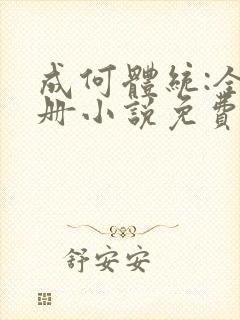 成何體統:全
册小說免費
舒安安